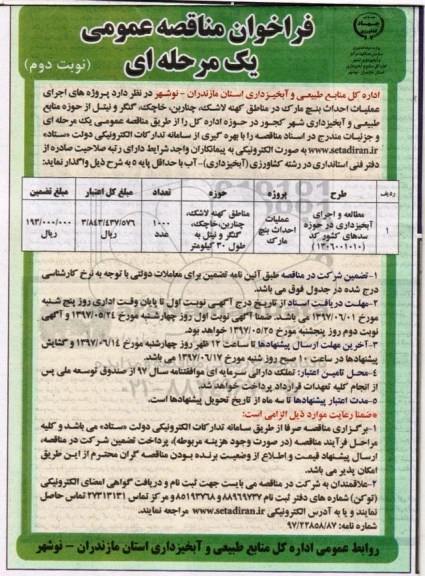 فراخوان مناقصه عمومی
یک مرحله ای
(نوبت دوم)
اداره کل منابع طبیعی و آبخیزداری استان مازندران - نوشهر در نظر دارد پروژه های اجرای
عملیات احداث بنچ مارک در مناطق کهنه لاشک، چنارین، خاچک، گنگر و نیتل از حوزه منابع
طبیعی و آبخیزداری شهر کجور در حوزه اداره کل را از طریق مناقصه عمومی یک مرحله ای
و جزییات مندرج در اسناد مناقصه را با بهره گیری از سامانه تدارکات الکترونیکی دولت «ستاد»
www.setadiran.ir به صورت الکترونیکی به پیمانکاران واجد شرایط دارای رتبه صلاحیت صادره از
دفتر فنی استانداری در رشته کشاورزی (آبخیزداری)- آب با حداقل پایه ۵ به شرح ذیل واگذار نماید:
ردیف طرح پروژه حوزه تعداد مبلغ کل اعتبار مبلغ تضمین
۱ مطالعه و اجرای آبخیزداری در حوزه سدهای کشور کد (۱۳۰۶۰۰۱۰۱۰) عملیات احداث بنچ مارک مناطق کهنه لاشک، چنارین، خاچک، گنگر و نیتل به طول ۳۰ کیلومتر ۱۰۰۰ عدد ۳/۸۴۳/۴۳۷/۵۷۶ ریال ۱۹۳/۰۰۰/۰۰۰ ریال
۱-تضمین شرکت در مناقصه طبق آئین نامه تضمین برای معاملات دولتی با توجه به نرخ کارشناسی
درج شده در جدول فوق می باشد.
۲-مهلت دریافت اسناد از تاریخ درج آگهی نوبت اول تا پایان وقت اداری روز پنج شنبه
مورخ ۱۳۹۷/۰۶/۰۱ می باشد. ضمنا آگهی نوبت اول روز چهارشنبه مورخ ۱۳۹۷/۰۵/۲۴ و آگهی
نوبت دوم روز پنجشنبه مورخ ۱۳۹۷/۰۵/۲۵ خواهد بود.
۳-آخرین مهلت ارسال پیشنهادها تا ساعت ۱۲ ظهر روز چهارشنبه مورخ ۱۳۹۷/۰۶/۱۴ و گشایش
پیشنهادها در ساعت ۱۰ صبح روز شنبه مورخ ۱۳۹۷/۰۶/۱۷ می باشد.
۴-محل تامین اعتبار: تملک دارائی سرمایه ای موافقتنامه سال ۹۷ از صندوق توسعه ملی پس
از انجام کلیه تعهدات قرارداد پرداخت خواهد شد.
۵-مدت اعتبار پیشنهادها تا سه ماه از تاریخ تحویل پیشنهادها است.
*ضمنا رعایت موارد ذیل الزامی است:
۱-برگزاری مناقصه صرفا از طریق سامانه تدارکات الکترونیکی دولت «ستاد» می باشد و کلیه
مراحل فرآیند مناقصه (در صورت وجود هزینه مربوطه)، پرداخت تضمین شرکت در مناقصه،
ارسال پیشنهاد قیمت و اطلاع از وضعیت برنده بودن مناقصه گران محترم از این طریق
امکان پذیر می باشد.
۲-علاقمندان به شرکت در مناقصه می بایست جهت ثبت نام و دریافت گواهی امضای الکترونیکی
(توکن) شماره های دفتر ثبت نام ۸۸۹۶۹۷۳۷ و ۸۵۱۹۳۷۶۸ و مرکز تماس ۲۷۳۱۳۱۳۱ تماس حاصل
نمایند و یا به آدرس الکترونیکی www.setadiran.ir مراجعه نمایند.
شماره نامه: ۹۷/۲۲۸۵۸/۸۷
روابط عمومی اداره کل منابع طبیعی و آبخیزداری استان مازندران - نوشهر